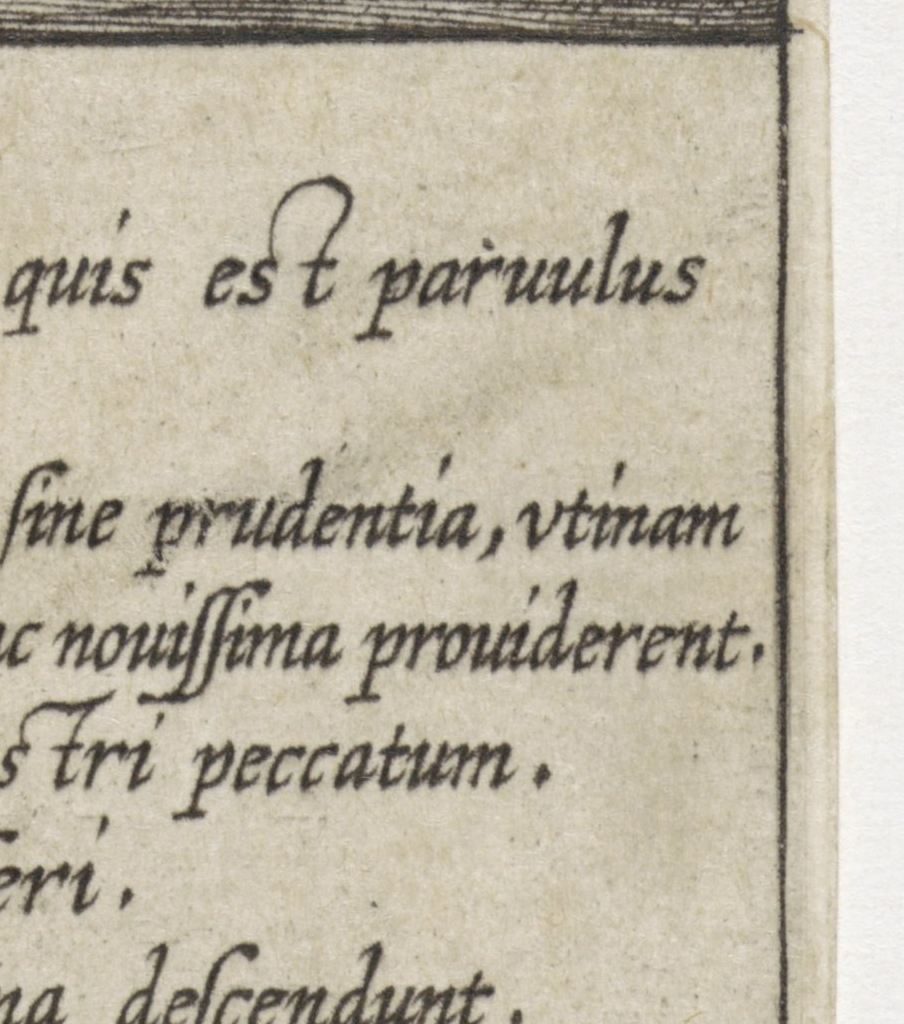 quis est paruulus
sine prudentia, vtinam
ac nouissima prouiderent.
stri peccatum.
eri.
na descendunt.